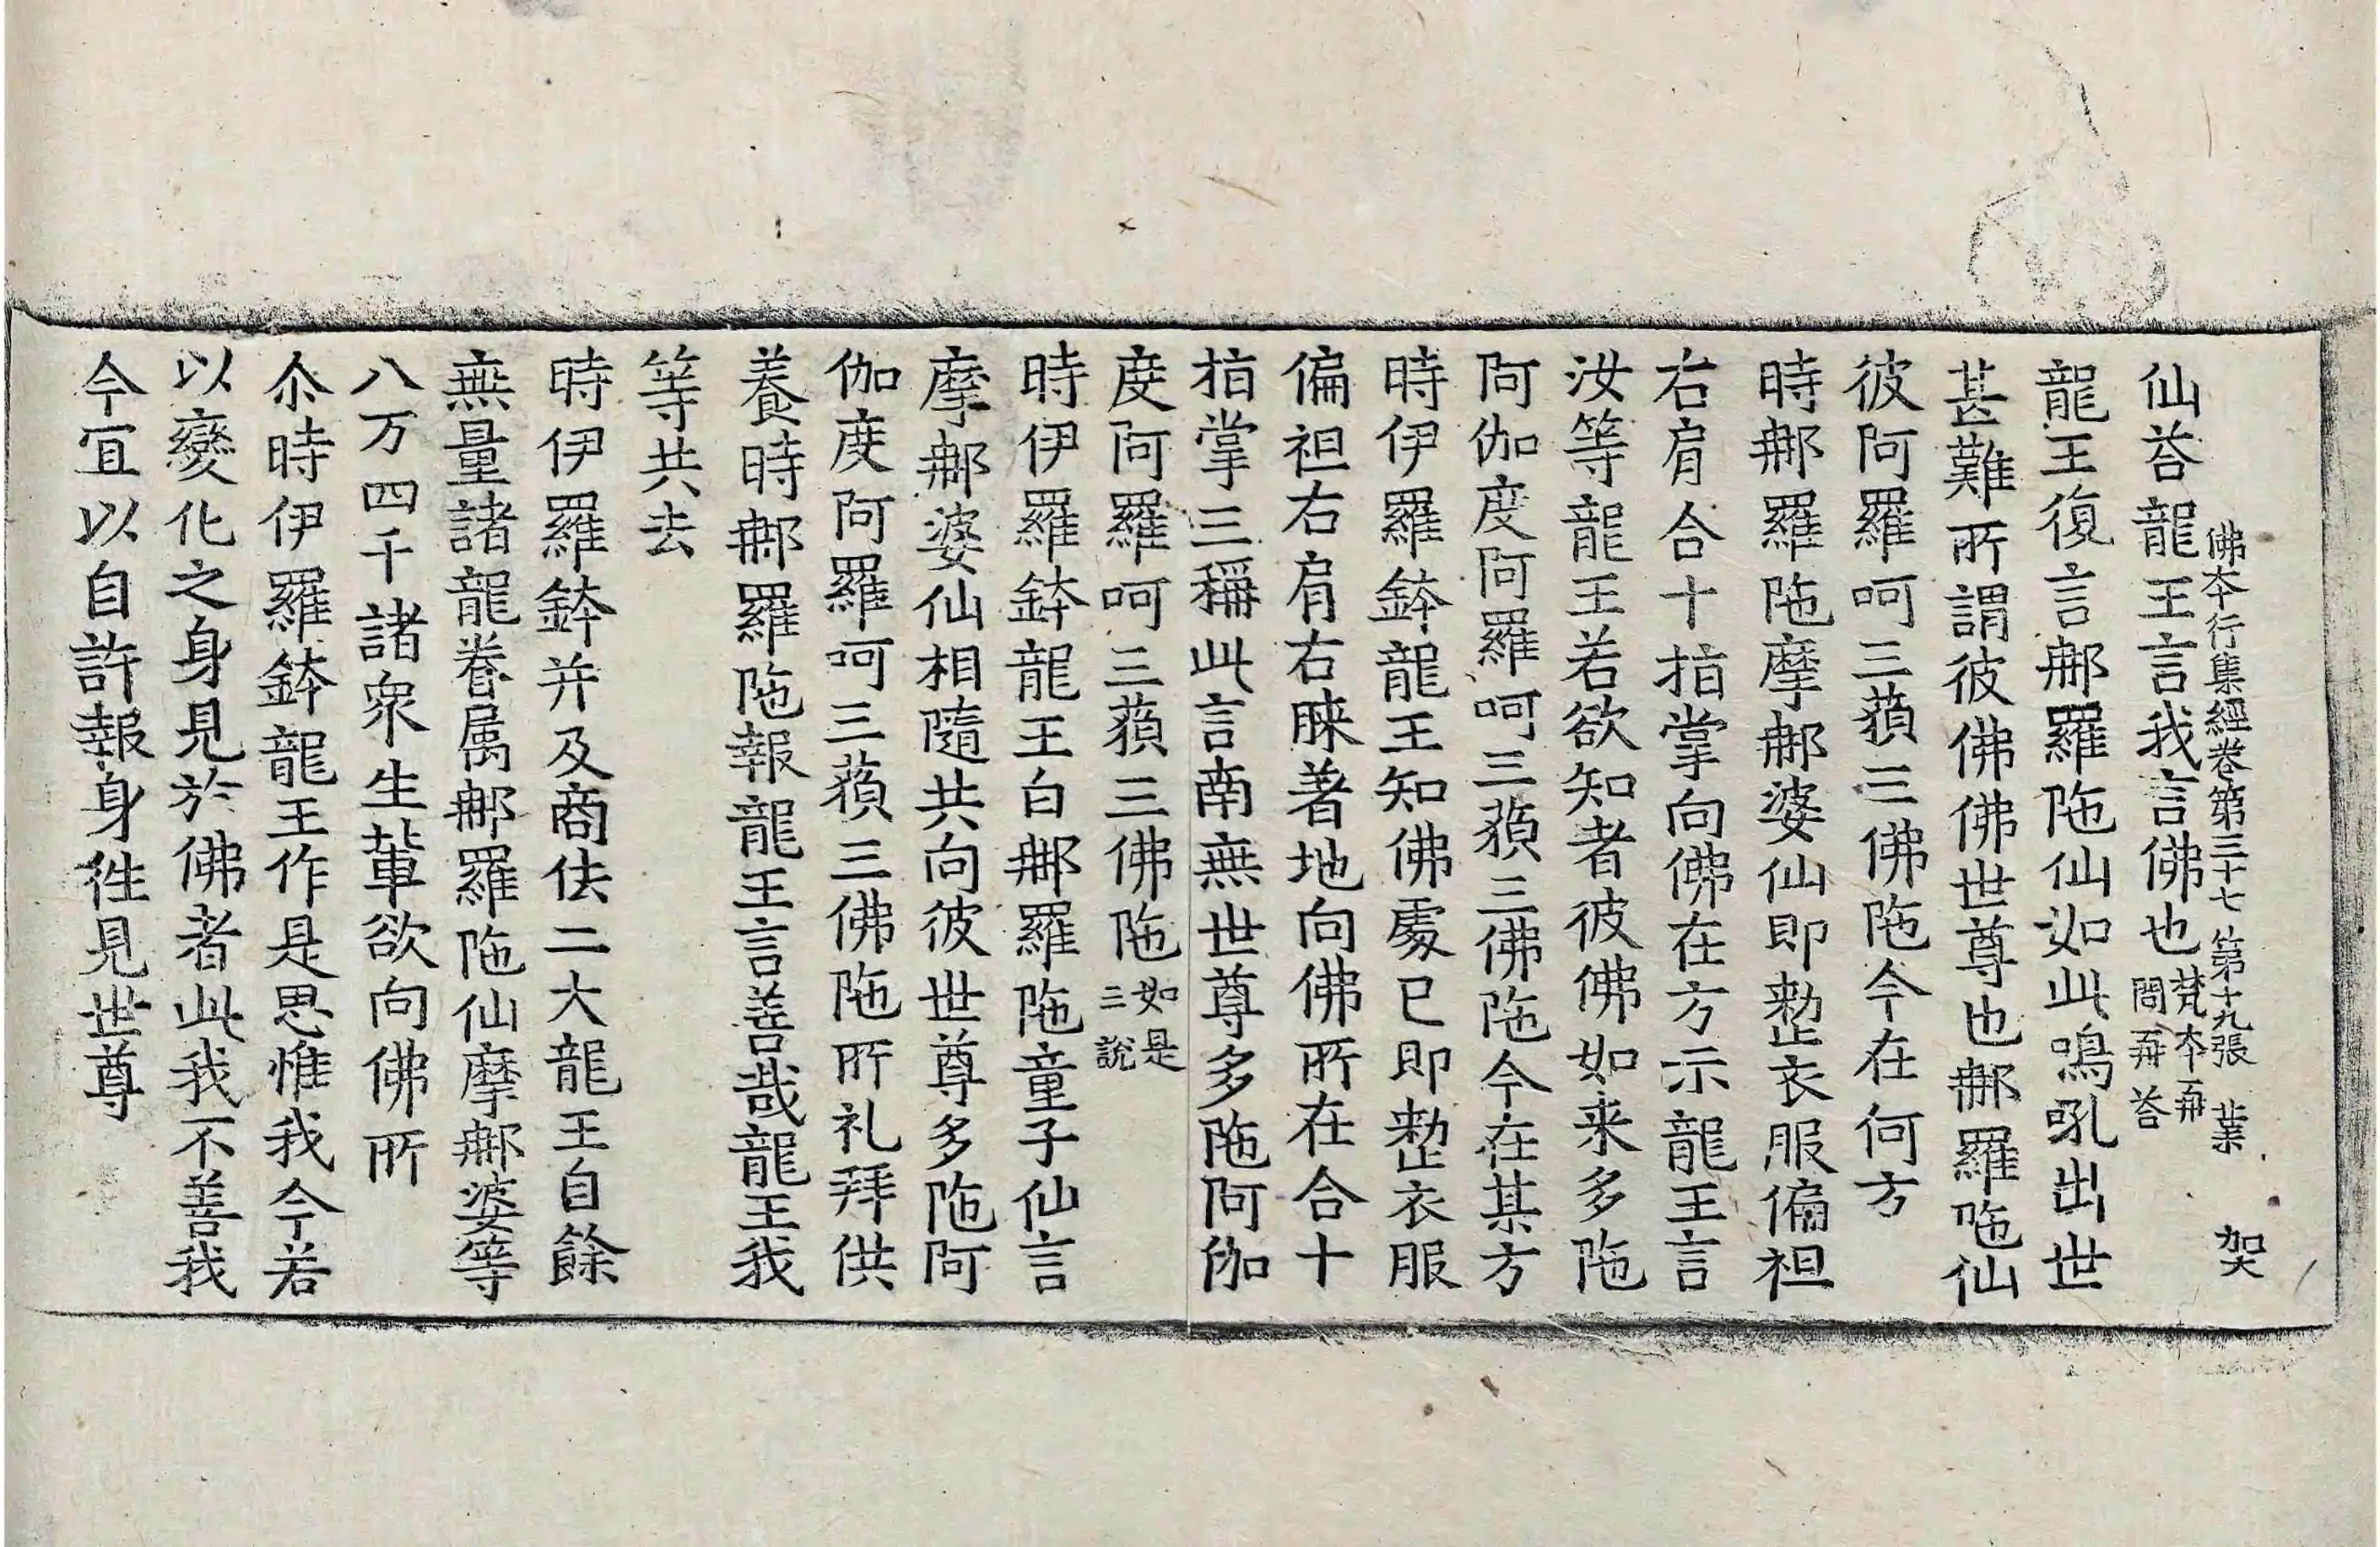 佛夲行集經卷第三十七 第十九張 業 架
仙荅龍王言我言佛也梵夲再問再荅
龍王復言那羅陁仙如此鳴吼出世
甚難所謂彼佛佛世尊也那羅陁仙
彼阿羅呵三藐三佛陁今在何方
時那羅陁摩那婆仙即整衣服偏袒
右肩合十指掌向佛在方示龍王言
汝等龍王若欲知者彼佛如来多陁
阿伽度阿羅呵三藐三佛陁今在某方
時伊羅鉢龍王知佛處已即整衣服
偏袒右肩右膝著地向佛所在合十
指掌三稱此言南無世尊多陁阿伽
度阿羅呵三藐三佛陁如是三說
時伊羅鉢龍王白那羅陁童子仙言
摩那婆仙相隨共向彼世尊多陁阿
伽度阿羅呵三藐三佛陁所礼拜供
養時那羅陁報龍王言善哉龍王我
等共去
時伊羅鉢并及商佉二大龍王自餘
無量諸龍眷属那羅陁仙摩那婆等
八万四千諸衆生軰欲向佛所
尒時伊羅鉢龍王作是思惟我今若
以變化之身見於佛者此我不善我
今冝以自許報身徃見世尊